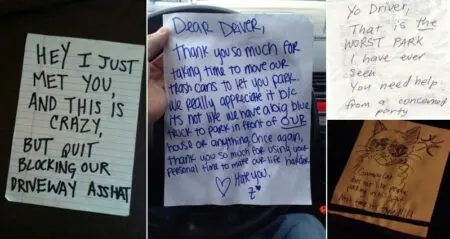 HEY I JUST
MET YOU,
AND THIS IS
CRAZY,
BUT QUIT
BLOCKING OUR
DRIVEWAY ASSHAT
Dear Driver,
Thank you so much for
taking time to move our
trash cans to let you park.
We really appreciate it b/c
it's not like we have a big blue
truck to park in front of OUR
house or anything. Once again,
thank you so much for using your
personal time to make our life harder.
Hate you,
Yo Driver,
That is the
WORST PARK
I have ever
seen
You need help
from a concerned
party